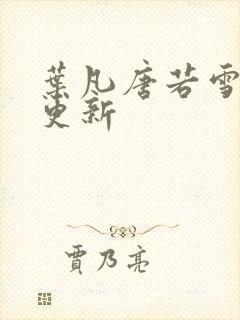 葉凡唐若雪
更新
賈乃亮